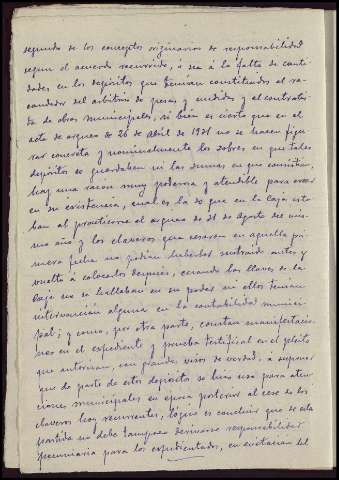 segundo de los conceptos originarios de responsabilidad
segun el acuerdo recurrido, ó sea á la falta de canti-
dades en los depósitos que tenian constituidos el re-
caudador del arbitrio de pesas y medidas y el contratis-
ta de obras municipales, si bien es cierto que en el
acta de arqueo de 26 de Abril de 1921 no se hacen figu-
rar concreta y nominalmente los sobres en que tales
depósitos se guardaban ni las sumas en que consistian,
hay una razon muy poderosa y atendible para creer
en su existencia, cual es la de que en la caja esta-
ban al practicarse el arqueo de 31 de Agosto del mis-
mo año y los claveros que cesaron en aquella pri-
mera fecha no podian haberlos sustraido antes y
vuelto á colocarlos despues, cuando las llaves de la
caja no se hallaban en su poder ni ellos tenian
intervencion alguna en la contabilidad munici-
pal; y como, por otra parte, constan manifestacio-
nes en el expediente y prueba testifical en el pleito
que autorizan, con grandes visos de verdad, á suponer
que de parte de estos depósitos se hizo uso para aten-
ciones municipales en epoca posterior al cese de los
claveros hoy recurrentes, lógico es concluir que de esta
partida no debe tampoco derivarse responsabilidad
pecuniaria para los expedientados, en evitacion del